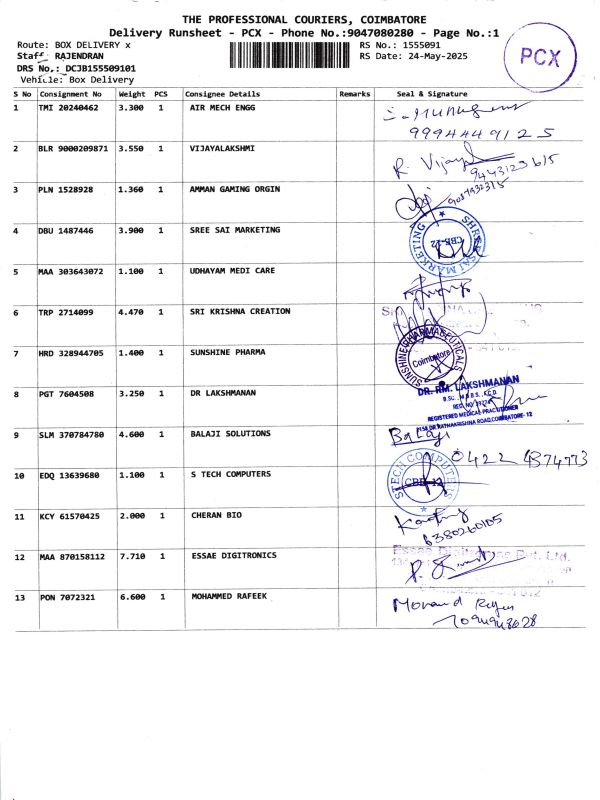 THE PROFESSIONAL COURIERS, COIMBATORE
Delivery Runsheet - PCX - Phone No.:9047080280 - Page No.:1
Route: BOX DELIVERY x
RS No.: 1555091
Staff: RAJENDRAN
RS Date: 24-May-2025
DRS No.: DCJB155509101
Vehicle: Box Delivery
PCX
S No Consignment No Weight PCS Consignee Details Remarks Seal & Signature
1 TMI 20240462 3.300 1 AIR MECH ENGG
9994449125
2 BLR 9000209871 3.550 1 VIJAYALAKSHMI R. Vijaya
9443123615
3 PLN 1528928 1.360 1 AMMAN GAMING ORGIN
4 DBU 1487446 3.900 1 SREE SAI MARKETING SHREE SAI MARKETING CBE-12
5 MAA 303643072 1.100 1 UDHAYAM MEDI CARE
6 TRP 2714099 4.470 1 SRI KRISHNA CREATION
7 HRD 328944705 1.400 1 SUNSHINE PHARMA SUNSHINE PHARMACEUTICALS Coimbatore
8 PGT 7604508 3.250 1 DR LAKSHMANAN DR. RM. LAKSHMANAN
REGISTERED MEDICAL PRACTITIONER
9 SLM 370784780 4.600 1 BALAJI SOLUTIONS Balaji
0422 4374773
10 EDQ 13639680 1.100 1 S TECH COMPUTERS STECH COMPUTERS CBE-12
11 KCY 61570425 2.000 1 CHERAN BIO
6380260105
12 MAA 870158112 7.710 1 ESSAE DIGITRONICS Essae Digitronics Pvt. Ltd.
13 PON 7072321 6.600 1 MOHAMMED RAFEEK